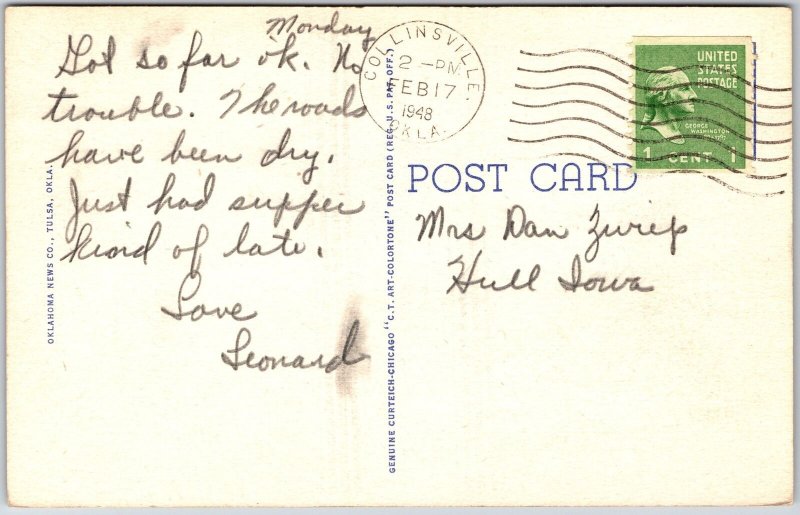 Monday
Got so far ok. No
trouble. The roads
have been dry.
Just had supper
kind of late.
Love
Leonard
OKLAHOMA NEWS CO., TULSA, OKLA.
GENUINE CURTEICH-CHICAGO "C.T. ART-COLORTONE" POST CARD (REG. U.S. PAT. OFF.)
COLLINSVILLE,
2 -PM
FEB 17
1948
OKLA.
UNITED
STATES
POSTAGE
GEORGE
WASHINGTON
1 CENT 1
POST CARD
Mrs Dan Zwiep
Hull Iowa